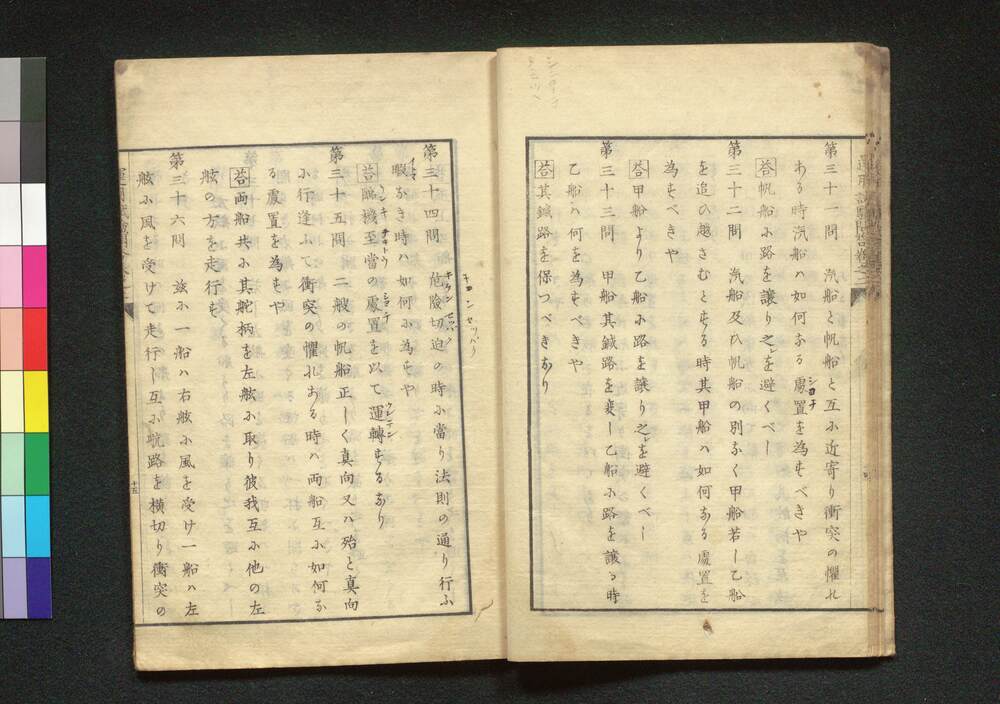 第三十一問 汽船と帆船と互ふ近寄り衝突の懼れ
ある時汽船ハ如何ある處置を為すべきや
答 帆船ふ路を譲り之を避くべし
第三十二問 汽船及ひ帆船の別なく甲船若し乙船
を追ひ越さむとする時其甲船ハ如何ある處置を
為すべきや
答 甲船より乙船ふ路を譲り之を避くべし
第三十三問 甲船其鍼路を変し乙船ふ路を譲る時
乙船ハ何を為すべきや
答 其鍼路を保つべきなり
第三十四問 危險切迫の時ふ當り法則の通り行ふ
暇なき時ハ如何ふ為すや
答 臨機至當の處置を以て運轉するなり
第三十五問 二艘の帆船正しく真向又ハ殆と真向
ふ行逢ふて衝突の懼れある時ハ両船互ふ如何な
る處置を為すや
答 両船共ふ其舵柄を左舷ふ取り彼我互ふ他の左
舷の方を走行す
第三十六問 茲ふ一船ハ右舷ふ風を受け一船ハ左
舷ふ風を受けて走行し互ふ航路を横切り衝突の